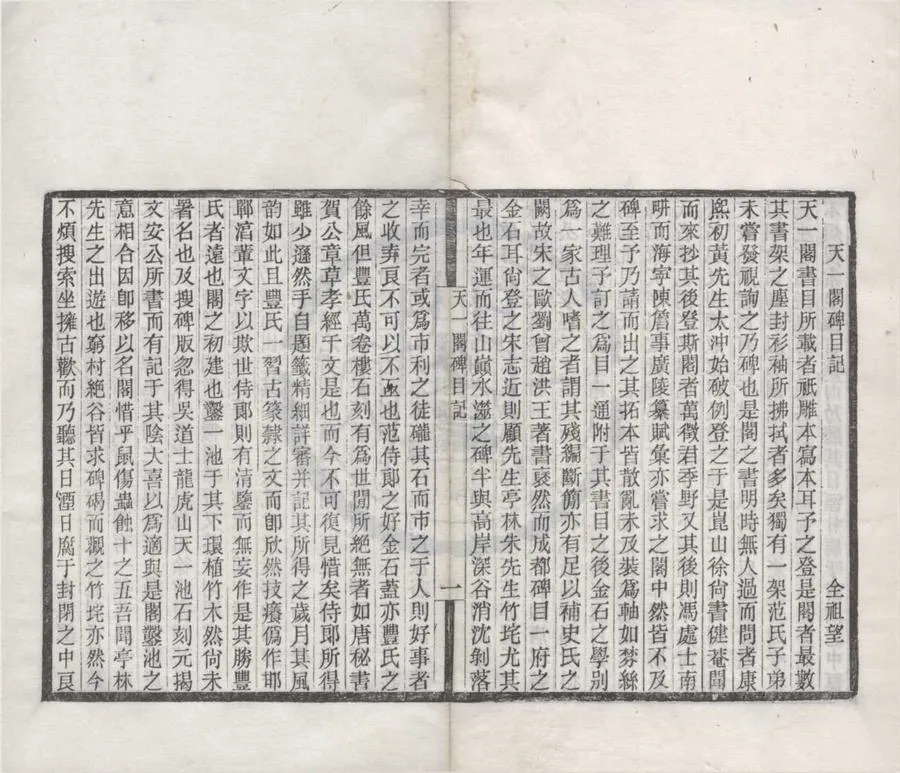 天一閣碑目記　全祖望
天一閣書目所載者祇雕本寫本耳予之登是閣者最數
其書架之塵封衫袖所拂拭者多矣獨有一架范氏子弟
未嘗發視詢之乃碑也是閣之書明時無人過而問者康
熙初黃先生太沖始破例登之于是崑山徐尙書健菴聞
而來抄其後登斯閣者萬徵君季野又其後則馮處士南
畊而海寧陳詹事廣陵纂賦彙亦嘗求之閣中然皆不及
碑至予乃請而出之其拓本皆散亂未及裝爲軸如棼絲
之難理予訂之爲目一通附于其書目之後金石之學別
爲一家古人嗜之者謂其殘編斷簡亦有足以補史氏之
闕故宋之歐劉曾趙洪王著書裒然而成都碑目一府之
金石耳尙登之宋志近則顧先生亭林朱先生竹垞尤其
最也年運而往山巔水澨之碑半與高岸深谷消沈剝落
天一閣碑目記　一
幸而完者或爲市利之徒礲其石而市之于人則好事者
之收弆良不可以不亟也范侍郎之好金石蓋亦豐氏之
餘風但豐氏萬卷樓石刻有爲世閒所絕無者如唐秘書
賀公章草孝經千文是也而今不可復見惜矣侍郎所得
雖少遜然手自題籤精細詳審并記其所得之歲月其風
韵如此且豐氏一習古篆隸之文而卽欣然技癢僞作邯
鄲淳輩文字以欺世侍郎則有清鑒而無妄作是其勝豐
氏者遠也閣之初建也鑿一池于其下環植竹木然尙未
署名也及搜碑版忽得吳道士龍虎山天一池石刻元揭
文安公所書而有記于其陰大喜以爲適與是閣鑿池之
意相合因卽移以名閣惜乎鼠傷蟲蝕十之五吾聞亭林
先生之出遊也窮村絕谷皆求碑碣而觀之竹垞亦然今
不煩搜索坐擁古歡而乃聽其日湮日腐于封閉之中良